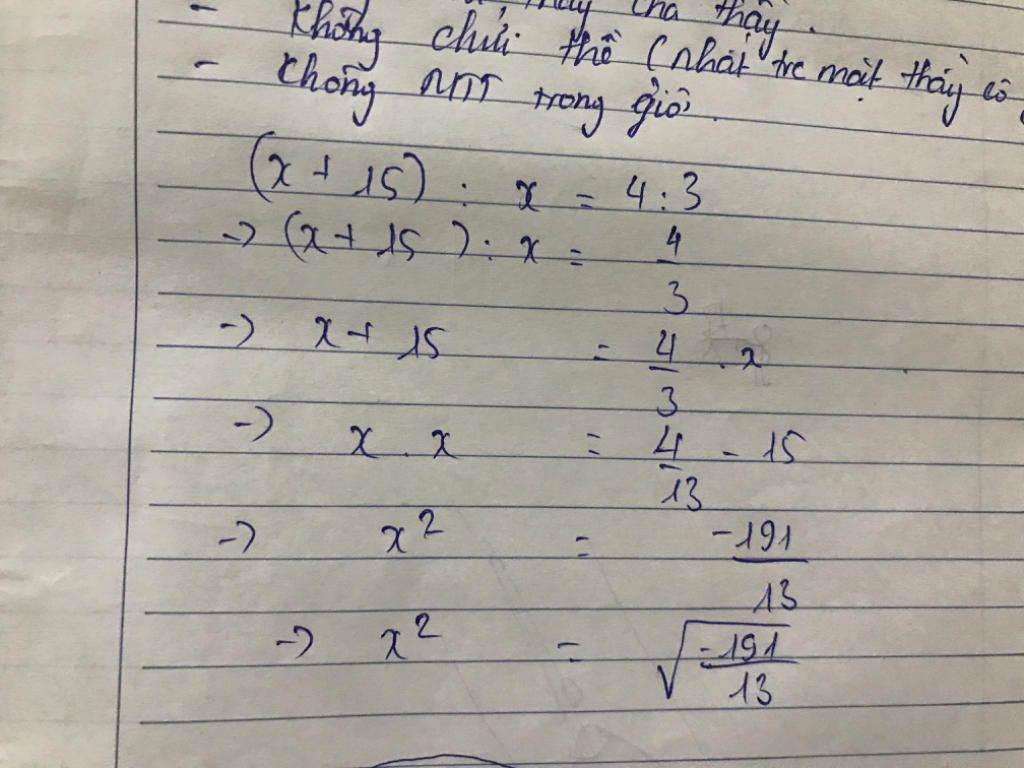 thầy cha thầy.
- Không chửi thề (nhất trc mặt thầy cô
- Không NTT trong giờ.
(x + 15) : x = 4 : 3
-> (x + 15) : x = 4/3
-> x + 15 = 4/3 . x
-> x . x = 4/13 - 15
-> x² = -191/13
-> x² = √(-191/13)